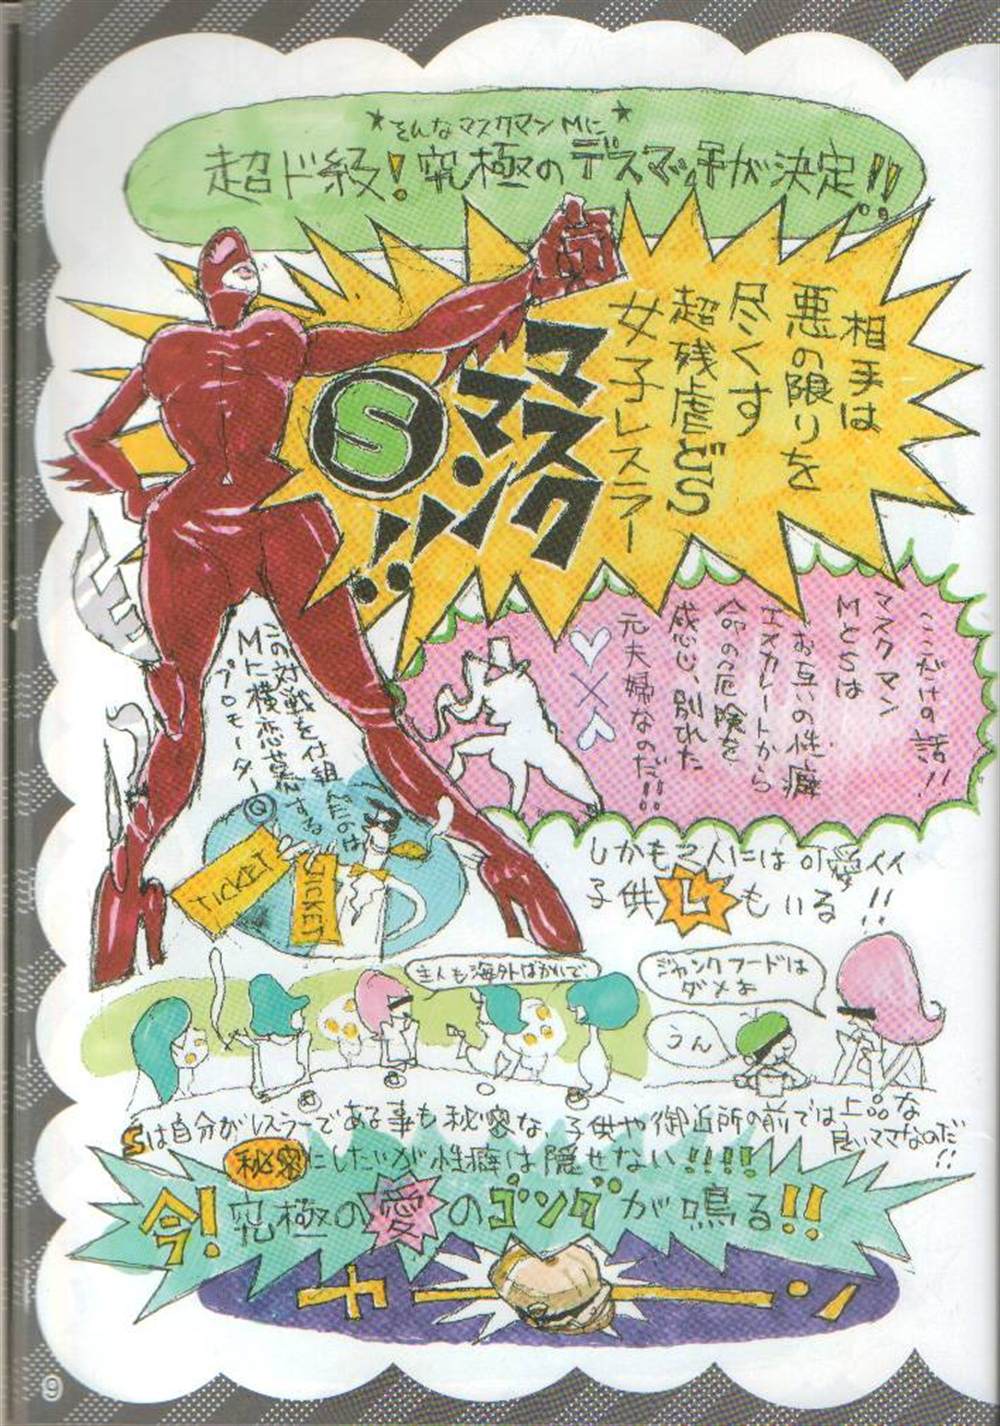 ★そんなマスクマンMに★
超ド級!究極のデスマッチが決定!!
相手は
悪の限りを
尽くす
超残虐どS
女子レスラー
マスク
マン
S
!!
ここだけの話!!
マスクマン
MとSは
お互いの性癖
エスカレートから
命の危険を
感じ、別れた
元夫婦なのだ!!
この対戦を仕組んだのは
Mに横恋慕する
プロモーターQ
TICKET
TICKET
しかも二人には可愛イイ
子供Lもいる!!
主人も海外ばかりで
ジャンクフードは
ダメよ
うん
Sは自分がレスラーである事も秘密な、子供や御近所の前では上品な
良いママなのだ!!
秘密にしたいが性癖は隠せない!!!!
今!究極の愛のゴングが鳴る!!
チーーン
9